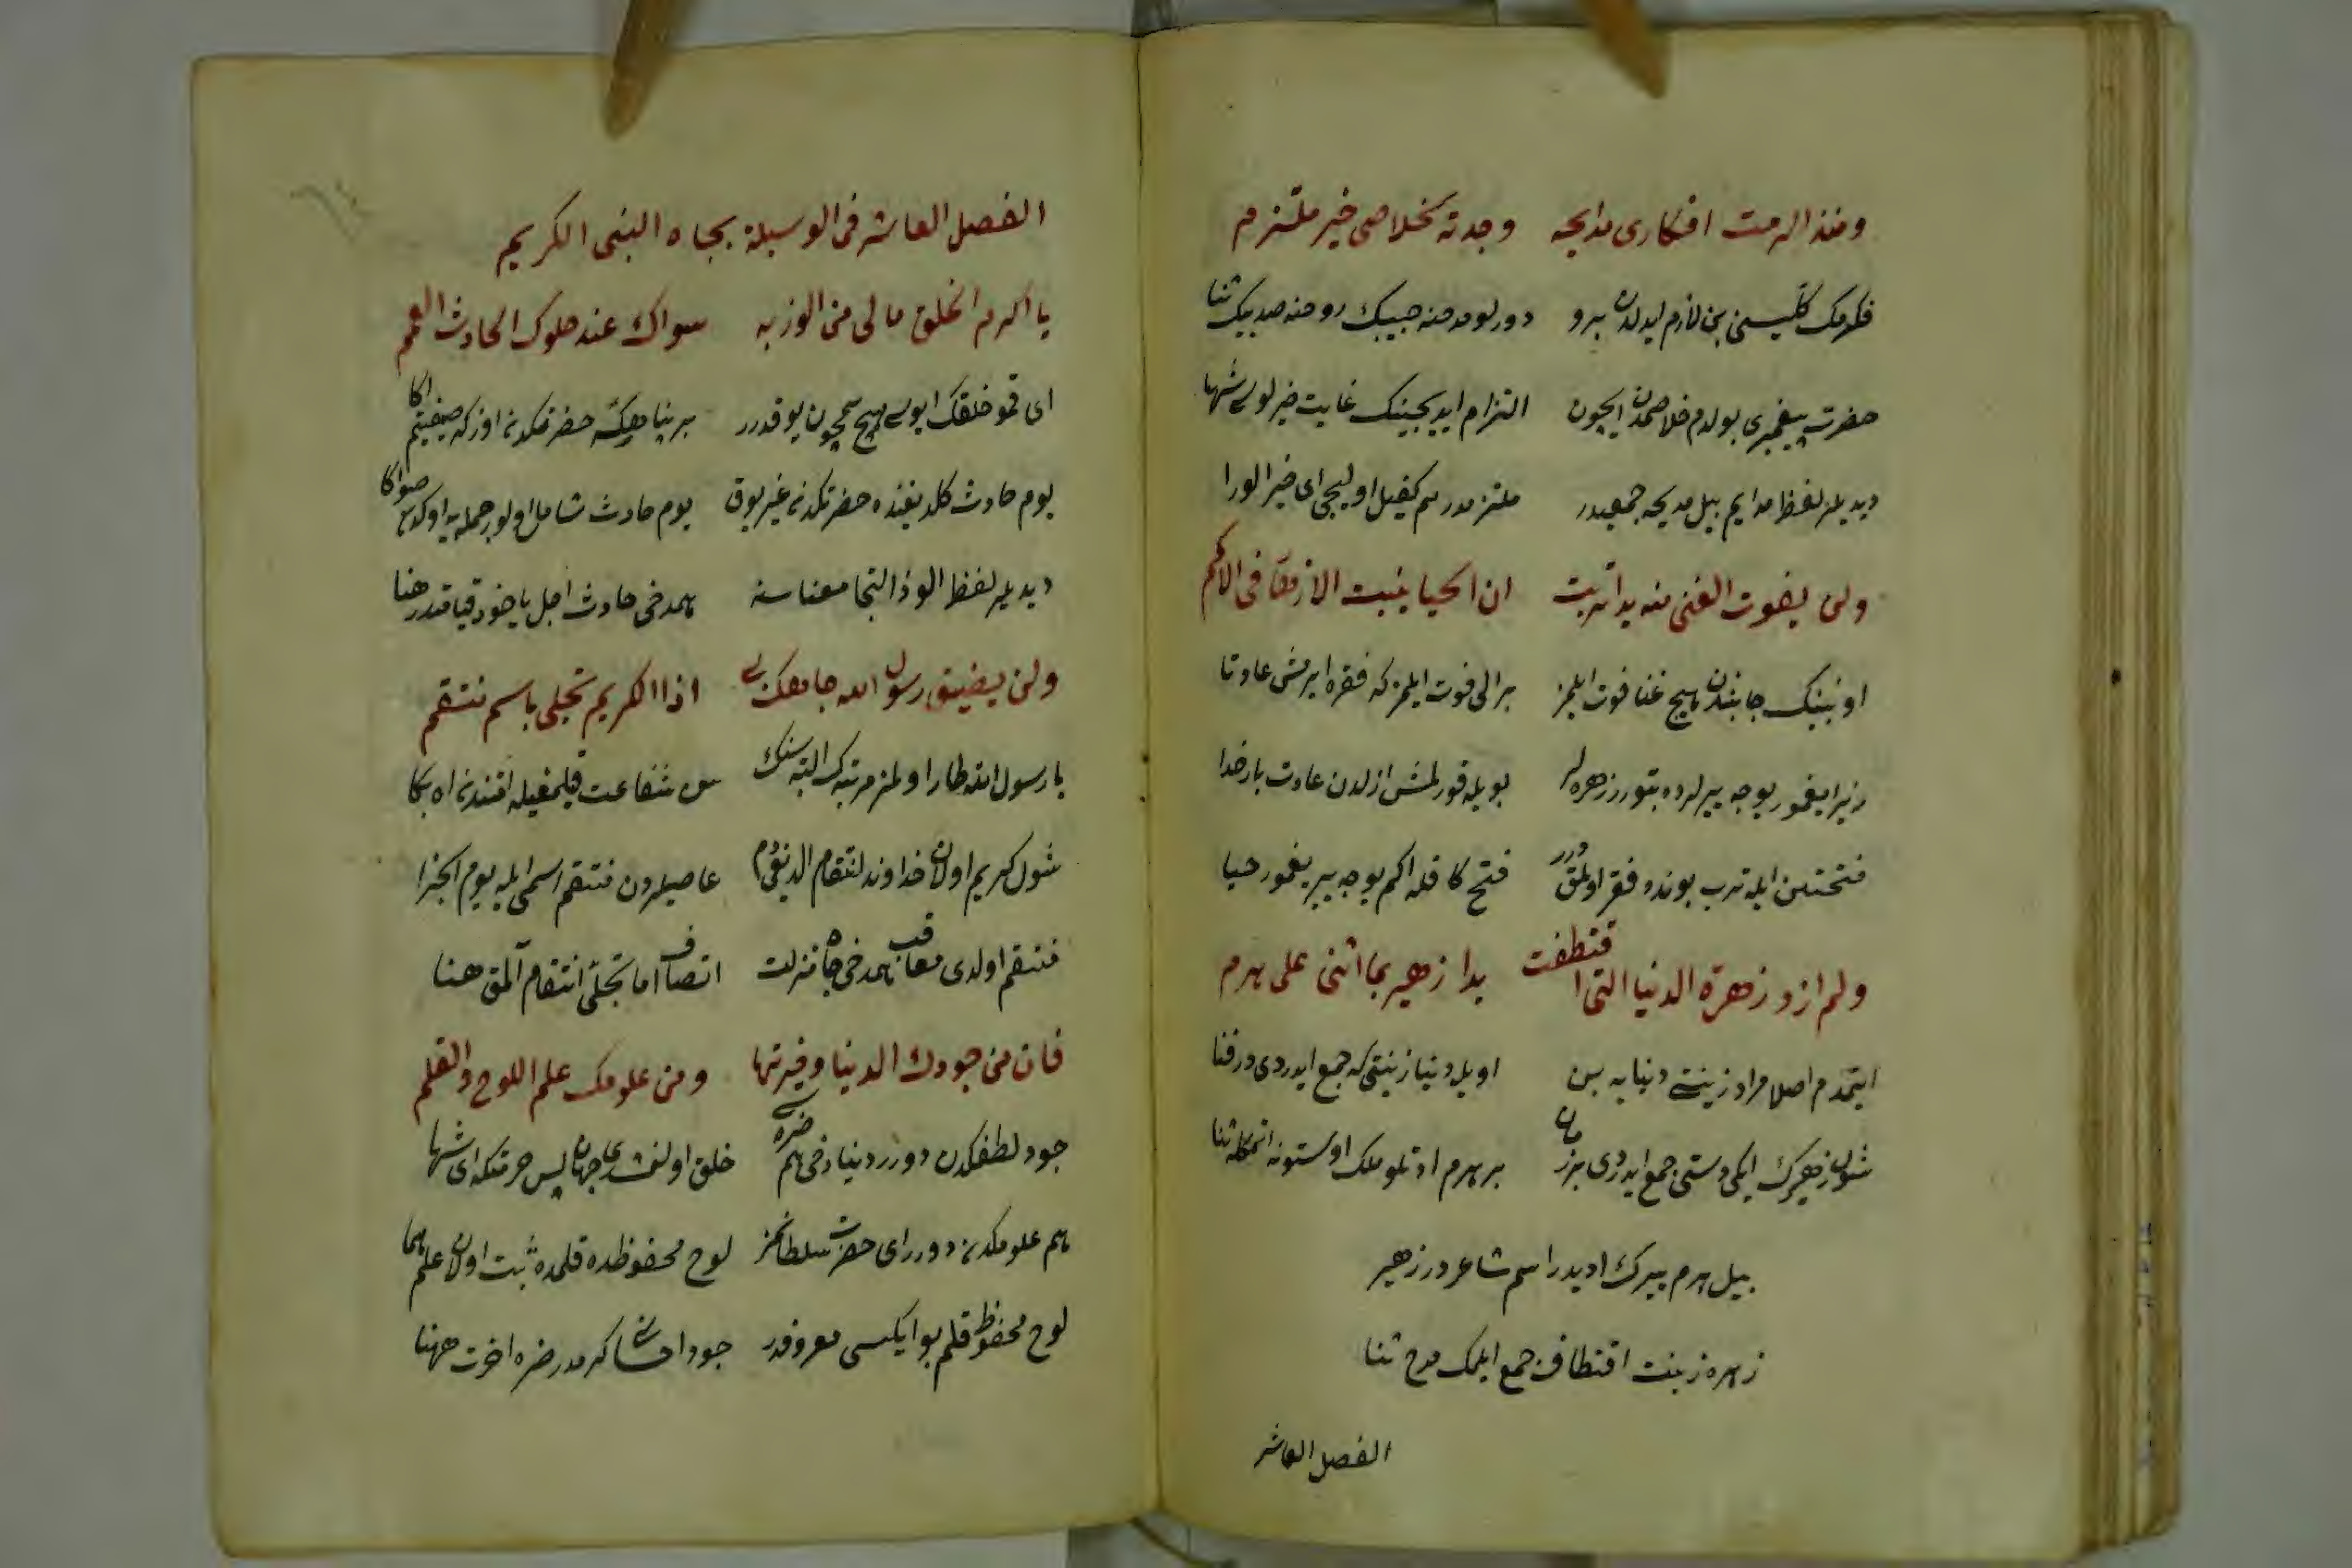 ومنذ الزمت افكارى مدايحه وجدته لخلاصى خير ملتزم
فكرمك كليسنى بن لازم ايدلدن برو دورلو مدحنه حبيبك روحنه صد بيك ثنا
حضرت پيغمبرى بولدم خلاصمدن ايچون التزام ايديجينك غايت خيرلوسى شها
ديديلر لفظ مدايح بيل مديحه جمعيدر ملتزمدر هم كفيل اوليجى اى خير الورا
ولن يفوت الغنى منه يدا تربت ان الحيا ينبت الازهار فى الاكم
اونبينك جانبندن هيچ غنا فوت ايلمز بر الى فوت ايلمز كه فقره ايرمش عادتا
زيرا يغمور يوجه ييرلرده بتورر زهره لر بويله قورلمش ازلدن عادت بار خدا
فتحتين ايله ترب بونده فقر اولمقدر فتح كا قله اكم يوجه يير يغمور حيا
ولم ارد زهرة الدنيا التى اقتطفت يدا زهير بما اثنى على هرم
ايتمدم اصلا مراد زينت دنيايه بن اويله دنيا زينتى كه جمع ايدردى ورفنا
شول زهيرك ايكى دستى جمع ايدردى هر زمان بر هرم ادلو ملك اوستونه اتمكله ثنا
بيل هرم بيرك اديدر اسم شاعردر زهير
زهره زينت اقتطاف جمع ايلمك مدح ثنا
الفصل العاشر
الفصل العاشر فى الوسيلة بجاه النبى الكريم
يا اكرم الخلق مالى من الوذ به سواك عند حلوك الحادث العمم
اى قمو خلقك ايوسى هيچ كمچون يوقدرر بر پناهكه حضرتكدن اوزكه صيغنيم اكا
يوم حادث كلديغنده حضرتكدن غير يوق يوم حادث شامل اولور جمله يه اوكدن صواكا
ديديلر لفظ الوذ التجا معناسنه همدخى حادث اجل ياخود قيامتدر هنا
ولن يضيق رسول الله جاهك بى اذا الكريم تجلى باسم منتقم
يا رسول الله طار اولمز مرتبه ك البته سنك سن شفاعت قيلمغيله افندن اه بكا
شول كريم اولان خداوند انتقام الديغى دم عاصيلردن منتقم اسمى ايله يوم الجزا
منتقم اولدى معاقب همدخى جاه منزلت اتصاف اما تجلى انتقام آلمق هنا
فان من جودك الدنيا وضرتها ومن علومك علم اللوح والقلم
جود لطفكدن دورر دنيا دخى هم ضره سى خلق اولنمشدى جهان پس حرمتكه اى شها
هم علومكدن دورر اى حضرت سلطانمز لوح محفوظده قلمده ثبت اولان علم هما
لوح محفوظ قلم بو ايكسى معروفدر جود احسان كرمدر ضره اخرت ههنا